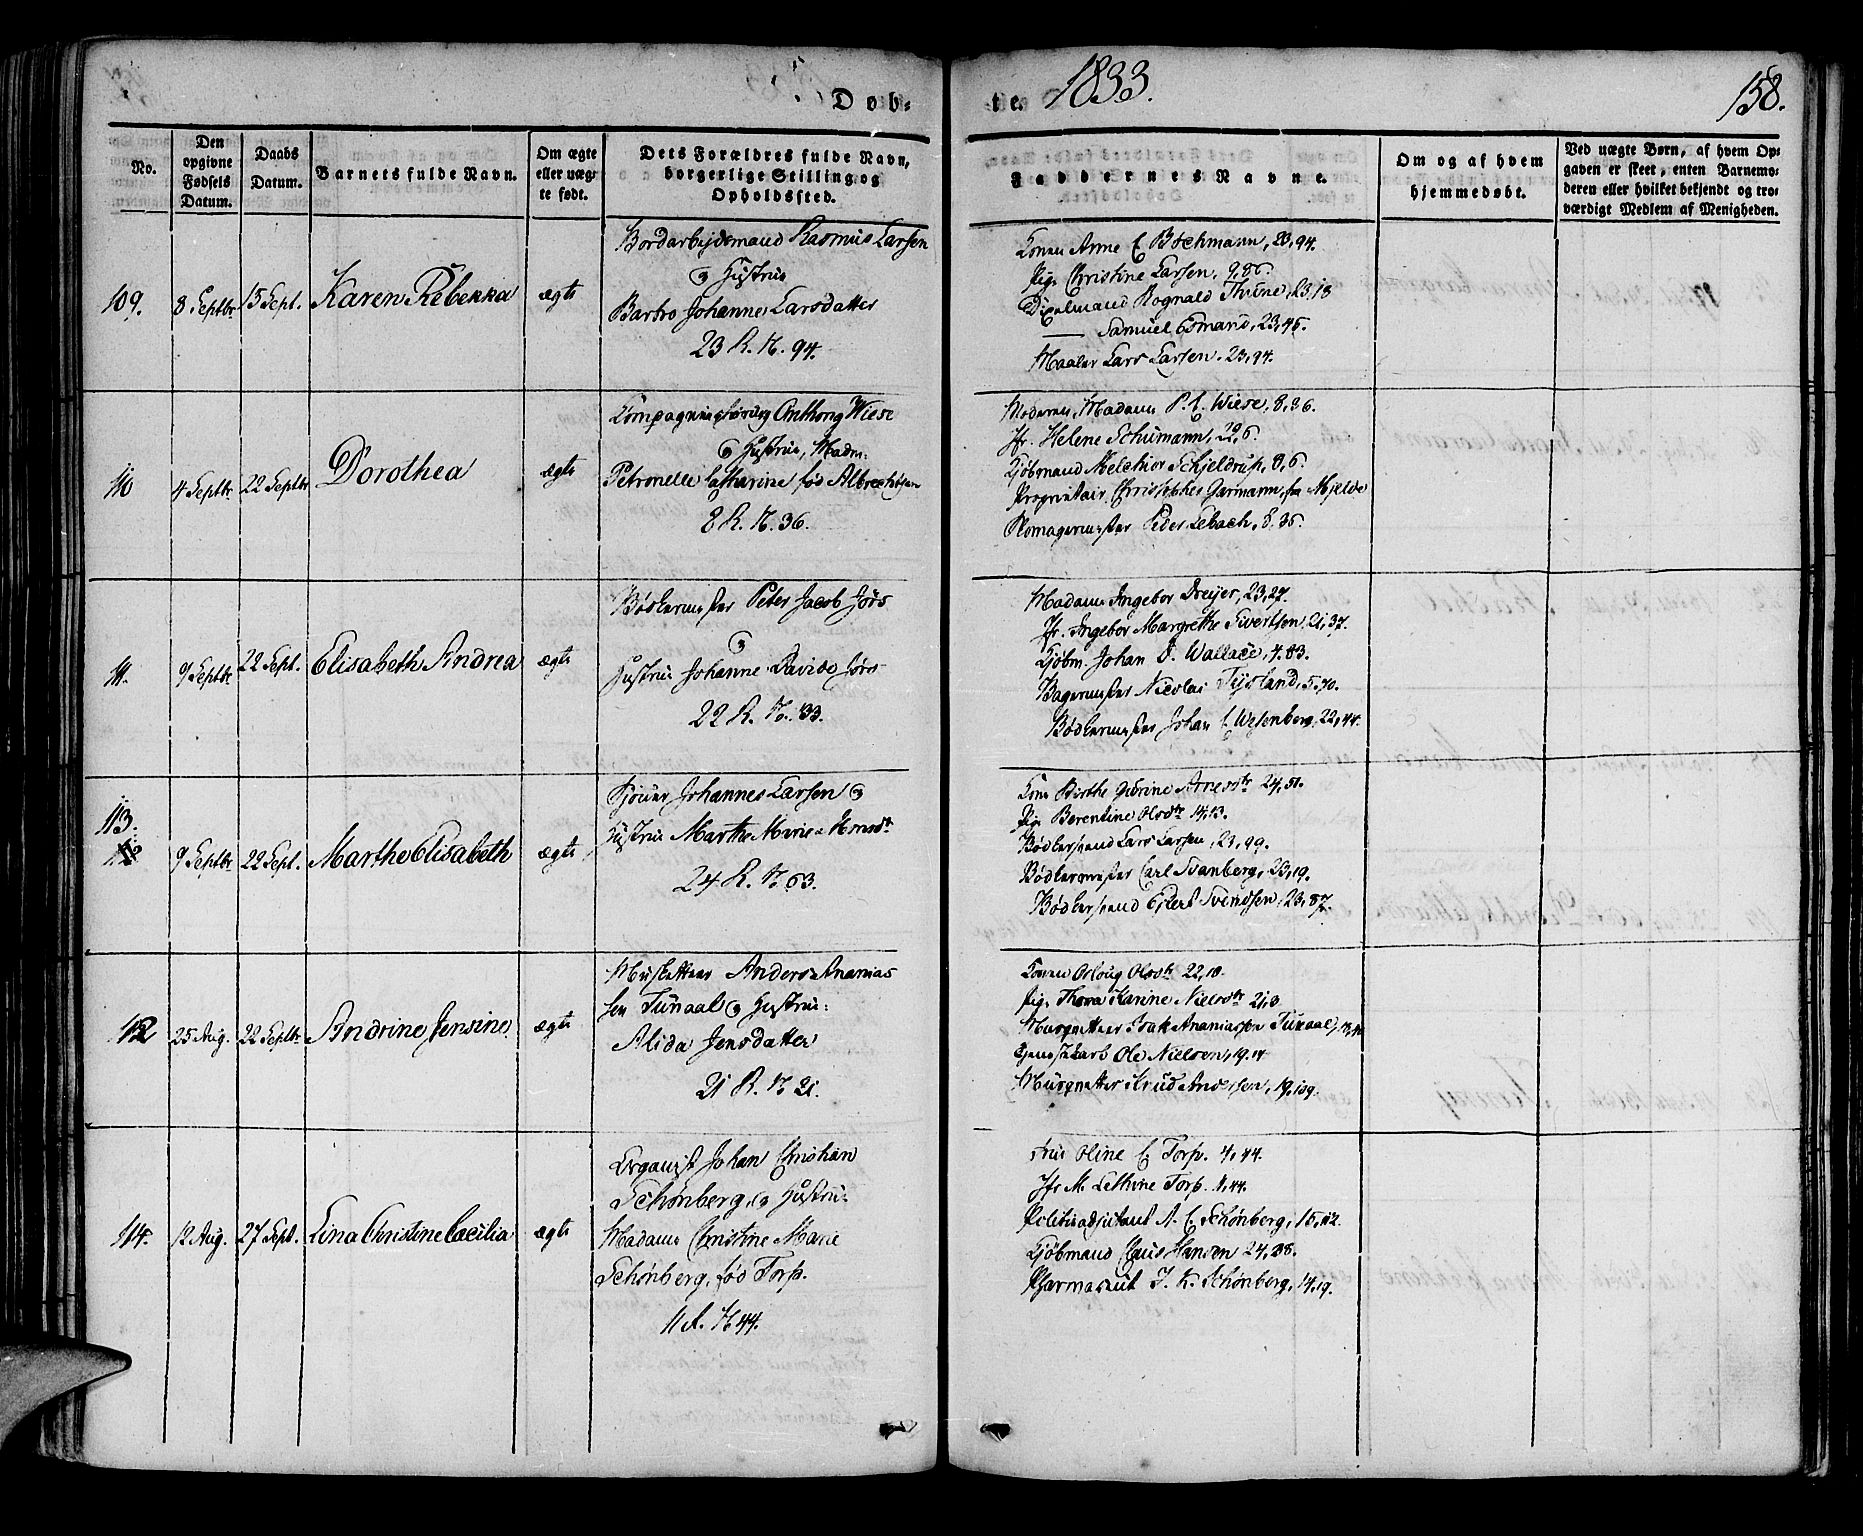 Døb-
te. 1833.
158.
No.
Den opgivne Fødsels Datum.
Daabs Datum.
Barnets fulde Navn.
Om ægte eller uægte født.
Dets Forældres fulde Navn, borgerlige Stilling og Opholdssted.
Faddernes Navne.
Om og af hvem hjemmedøbt.
Ved uægte Børn, af hvem Opgaven er skeet, enten Barnemoderen eller hvilket bekjendt og troværdigt Medlem af Menigheden.
109.
8 Septbr
15 Sept.
Karen Rebekka
ægte
Bordarbejdsmand Rasmus Larsen
og Hustrue
Barbro Johanne Larsdatter
23 R. N. 94.
Konen Anne C Böchmann, 23, 94.
Pig. Christine Larsen, 9, 86.
Rognald Thune, 23, 18
— Samuel Osmand, 23, 45.
Maaler Lars Larsen, 23, 94.
110
4 Septbr
22 Septbr
Dorothea
ægte
Anthony Wiese
og Hustrue, Madm:
Petronelle Catharine fød Albrechtsen
8 R. N. 36.
Moderen, Madam P. C. Wiese, 8, 36.
Jfr. Helene Schumann, 22, 6.
Kjöbmand Melchior Schjeldrup, 8, 6.
Proprietair Christopher Garmann, fra Mjelde
Skomagermester Peder Lebach, 8. 36.
111.
9 Septbr
22 Sept.
Elisabeth Andrea
ægte
Bödkermester Peter Jacob Jörs
og
Hustrue Johanne Davida Jörs
22 R. No. 33.
Madam Ingebor Dreyer, 23, 27.
Jfr. Ingebor Margrethe Sivertsen, 21, 37.
Kjöbm. Johan D. Wallace, 4. 83.
Bagermester Nicolai Tysland, 5. 70.
Bödkermester Johan C Wesenberg, 22, 44.
113.
9 Septbr
22 Sept.
Marthe Elisabeth
ægte
Johannes Larsen og
Hustrue Marthe Marie Monsdr
24 R. N. 63.
Kone Birthe Gurine Arnesdtr 24, 51.
Pig. Berentine Olsdtr 14, 13.
Bödkersvend Lars Larsen, 23, 99.
Bödkermester Carl Svanberg, 23, 19.
Bödkersvend Ejlert Svendsen, 23, 87.
112
25 Aug.
22 Septbr.
Andrine Jensine
ægte
Musketteer Anders Ananias
sen Tunaal og Hustrue:
Alida Jensdatter
21 R. N. 21.
Konen Osloug Olsdtr 22, 10.
Pig. Thora Karine Nielsdtr 21, 3
Musqetteer Isak Ananiassen Tunaal,
Tjenestekarl Ole Nielsen, 19. 14
Musqetteer Knud Andersen, 19, 109.
114.
12 Aug.
27 Sept.
Lina Christine Caecilia
ægte
Organist Johan Christian
Schönberg, og Hustrue
Madam Christine Marie
Schönberg, fød Torp.
11 R. N. 44.
Frue Oline C Torp. 4, 44.
Jfr M. Lethine Torp. 4, 44.
Politieadjutant A. C. Schönberg, 15, 12.
Kjöbmand Claus Hansen 24, 28.
Pharmaceut J. K. Schönberg, 14, 19.